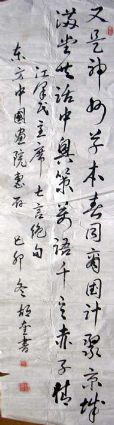 又是神州草木春同商国计聚京城
满堂共话中兴策万语千言赤子情
江泽民主席七言绝句
东方中国画院惠存
己卯冬
书